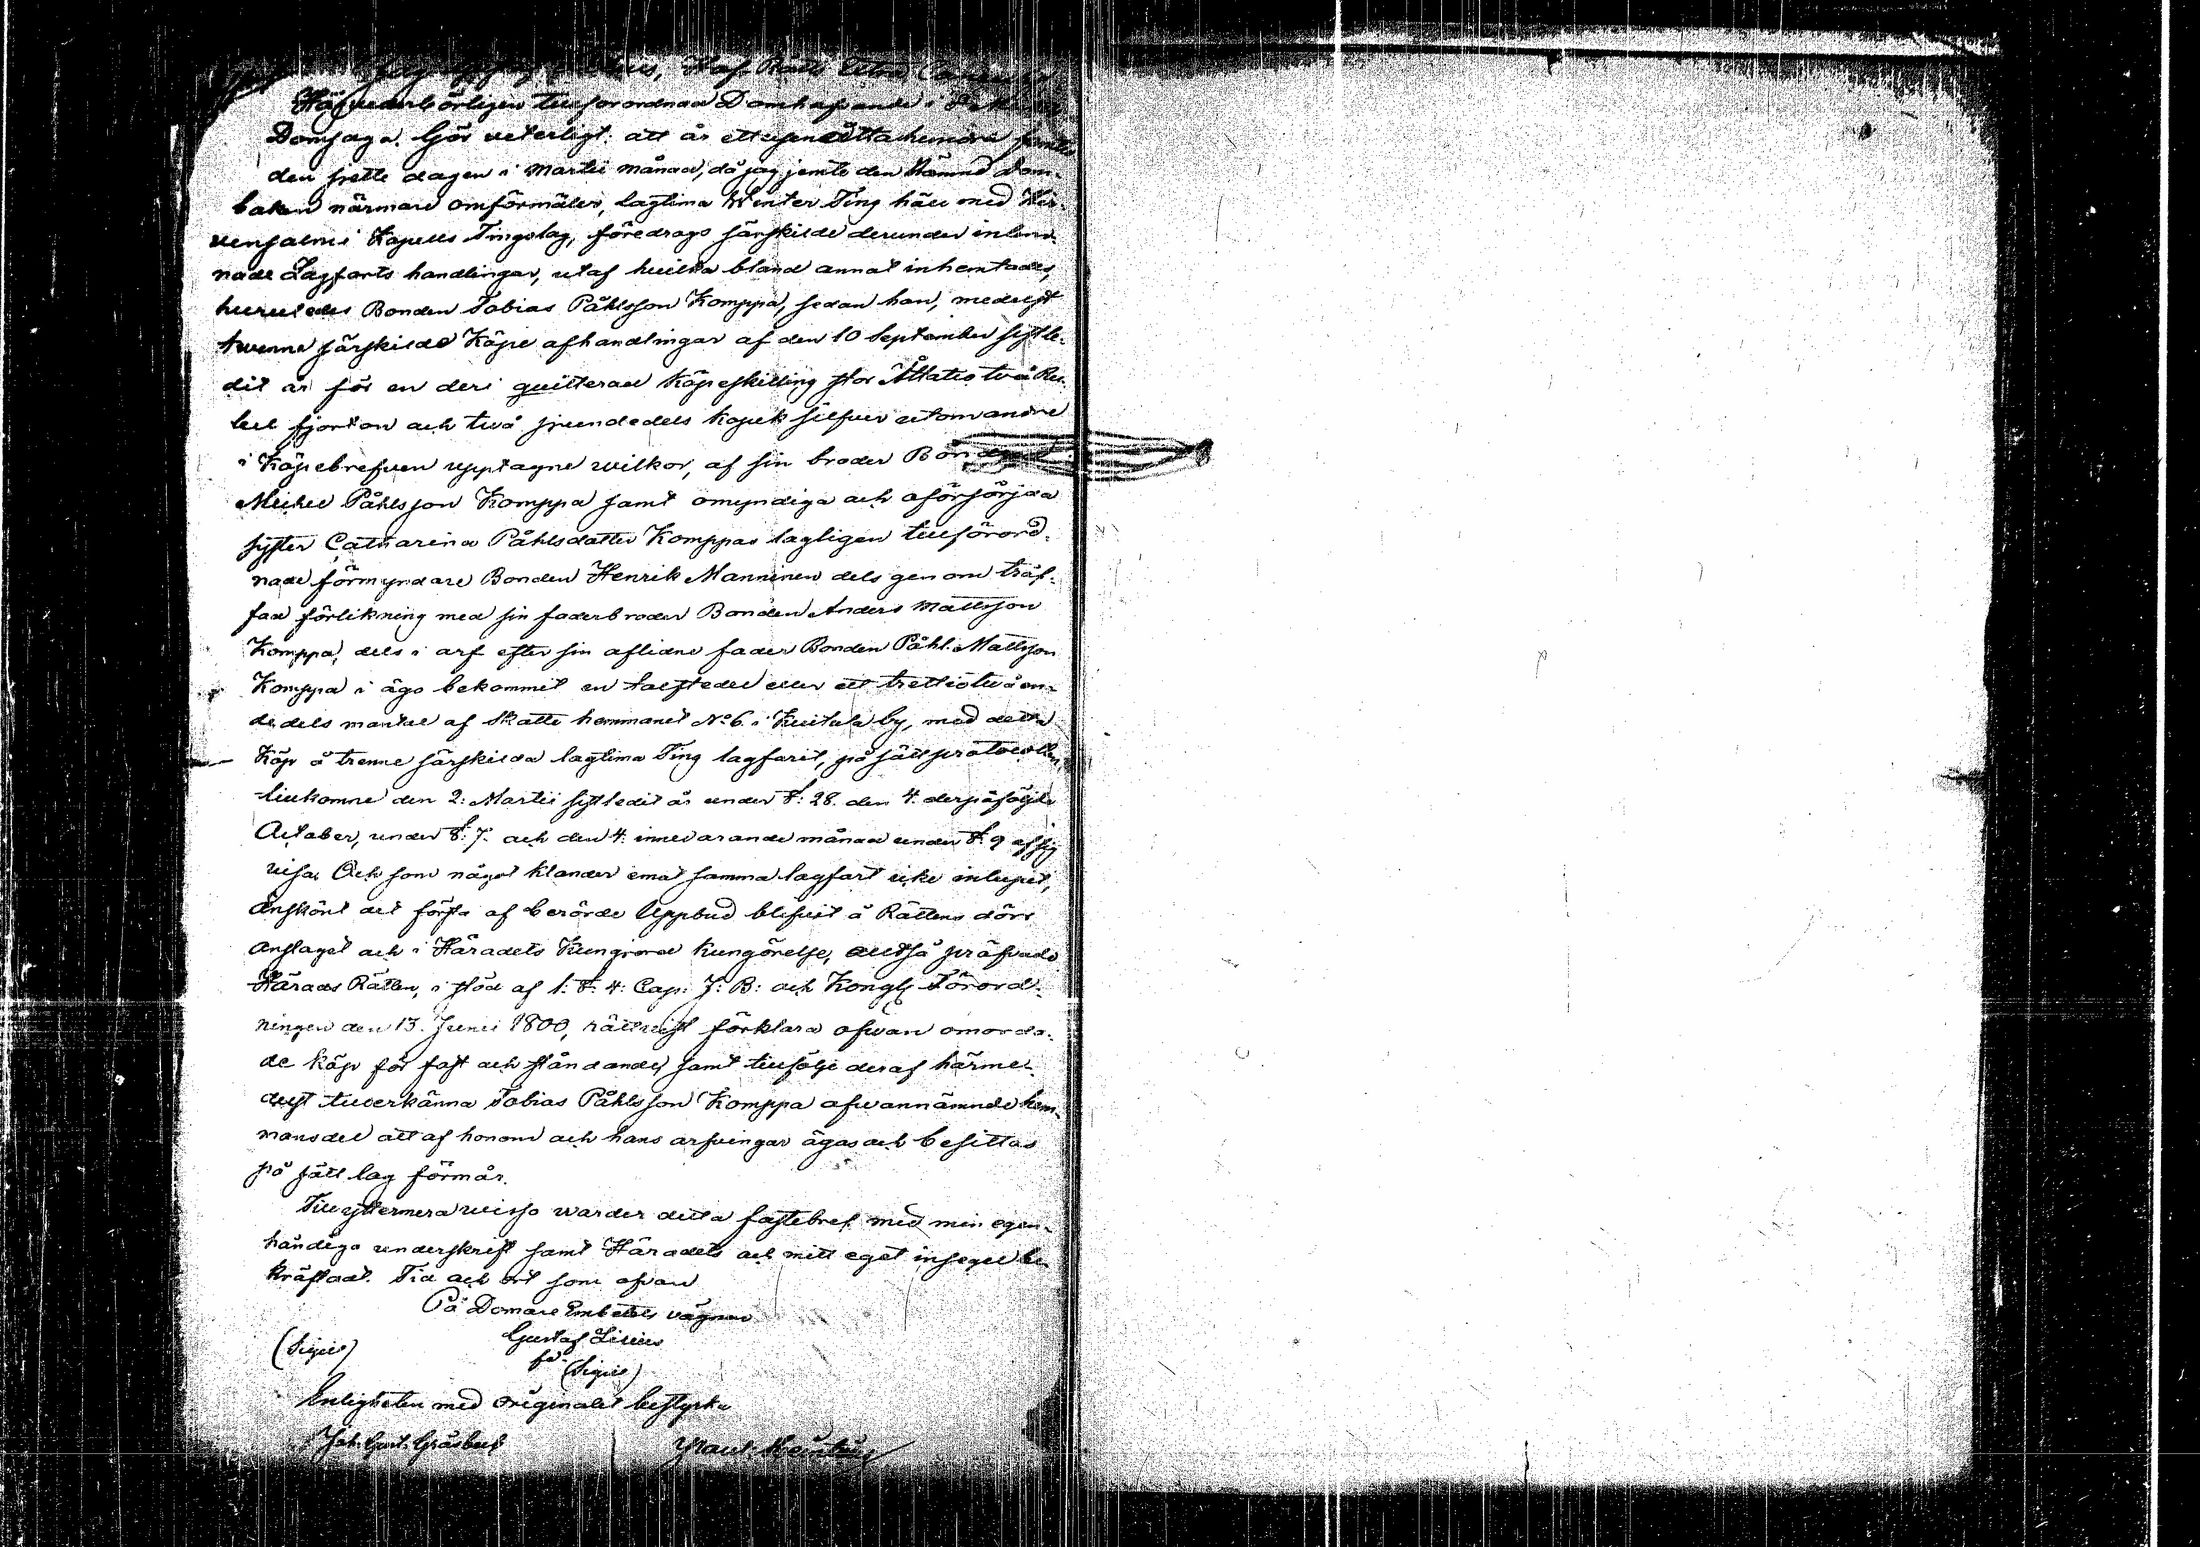 Jag Gustaf Lilius, Hof Rätts
Högvederbörligen tillförordnad Domhafvande i
Domsaga. Gör veterligt: att år ettusenåttahundra
den sjette dagen i Martii månad, då jag jemte den Nämnd Dom-
boken närmare omförmäler, lagtima Winter Ting höll med Hir-
vensalmi Kapells Tingslag, föredrogs särskilde derunder inläm-
nade Lagfarts handlingar, utaf hvilka bland annat inhemtades,
huruledes Bonden Tobias Påhlsson Komppa, sedan han, medelst
tvenne särskilde Köpe afhandlingar af den 10 September sistle-
dit år för en deri quitterad Köpeskilling stor Åttatio två Ru-
bel fjorton och två sjundedels Kopek silfver utom andre
i Köpebrefven upptagne wilkor, af sin broder Bonden
Michel Påhlsson Komppa samt omyndiga och oförsörjda
syster Catharina Påhlsdotter Komppas lagligen tillförord-
nade förmyndare Bonden Henrik Manninen dels genom träf-
fad förlikning med sin faderbroder Bonden Anders Mattsson
Komppa, dels i arf efter sin aflidne fader Bonden Påhl Mattsson
Komppa i ägo bekommit en tolftedel eller ett trettiotvåon-
dedels mantal af Skatte hemmanet No 6 i Kuitula by, med detta
Köp å trenne särskilda lagtima Ting lagfarit, på sätt protocollen
tillkomne den 2: Martii sistledit år under §: 28. den 4. derpåföljde
October, under §: 7. och den 4. innevarande månad under §. 9 af sig
visa. Och som något klander emot samma lagfart icke inlupit,
änskönt det första af berörde Uppbud blifvit å Rättens dörr
anslaget och i Häradets Kungjord Kungörelse, alltså pröfvade
Härads Rätten, i stöd af 1: §: 4: Cap: J: B: och Kongl. Förord-
ningen den 13. Junii 1800, rättvist förklara ofvan omorda-
de köp för fast och ståndande, samt tillfölje deraf härme-
delst tillerkänna Tobias Påhlsson Komppa ofvannämnde hem-
mansdel att af honom och hans arfvingar ägas och besittas
på sätt lag förmår.
Till yttermera visso warder detta fastebref med min egen-
händiga underskrift samt Häradets och mitt eget insegel be-
kräftadt. Tid och ort som ofvan
På Domare Embetets vägnar
Gustaf Lilius
(Sigill)
(Sigill)
Enligheten med originalet bestyrka
Joh. Gust. Gråsbeck